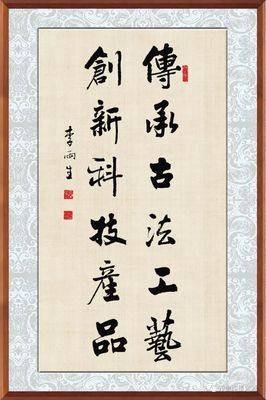 傳承古法工藝
創新科技產品
李雨生